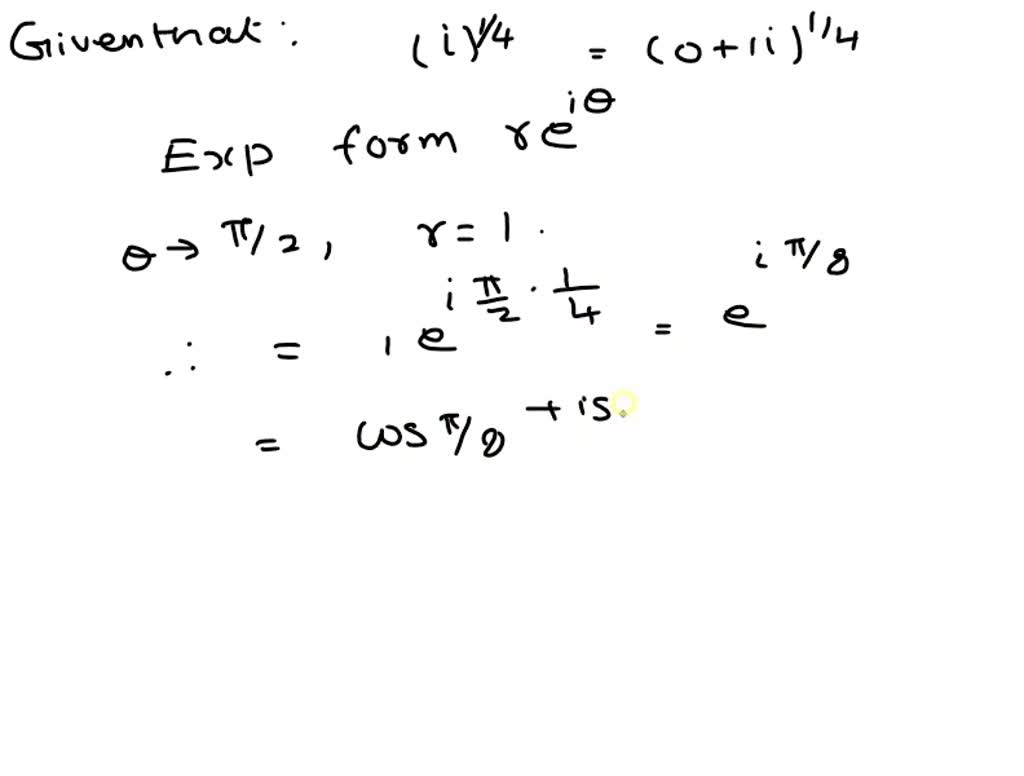 Given that : (i)^1/4 = (0+1i)^1/4
Exp form re^iθ
θ → π/2, r = 1.
∴ = 1 e^i π/2 · 1/4 = e^i π/8
= cos π/8 + is